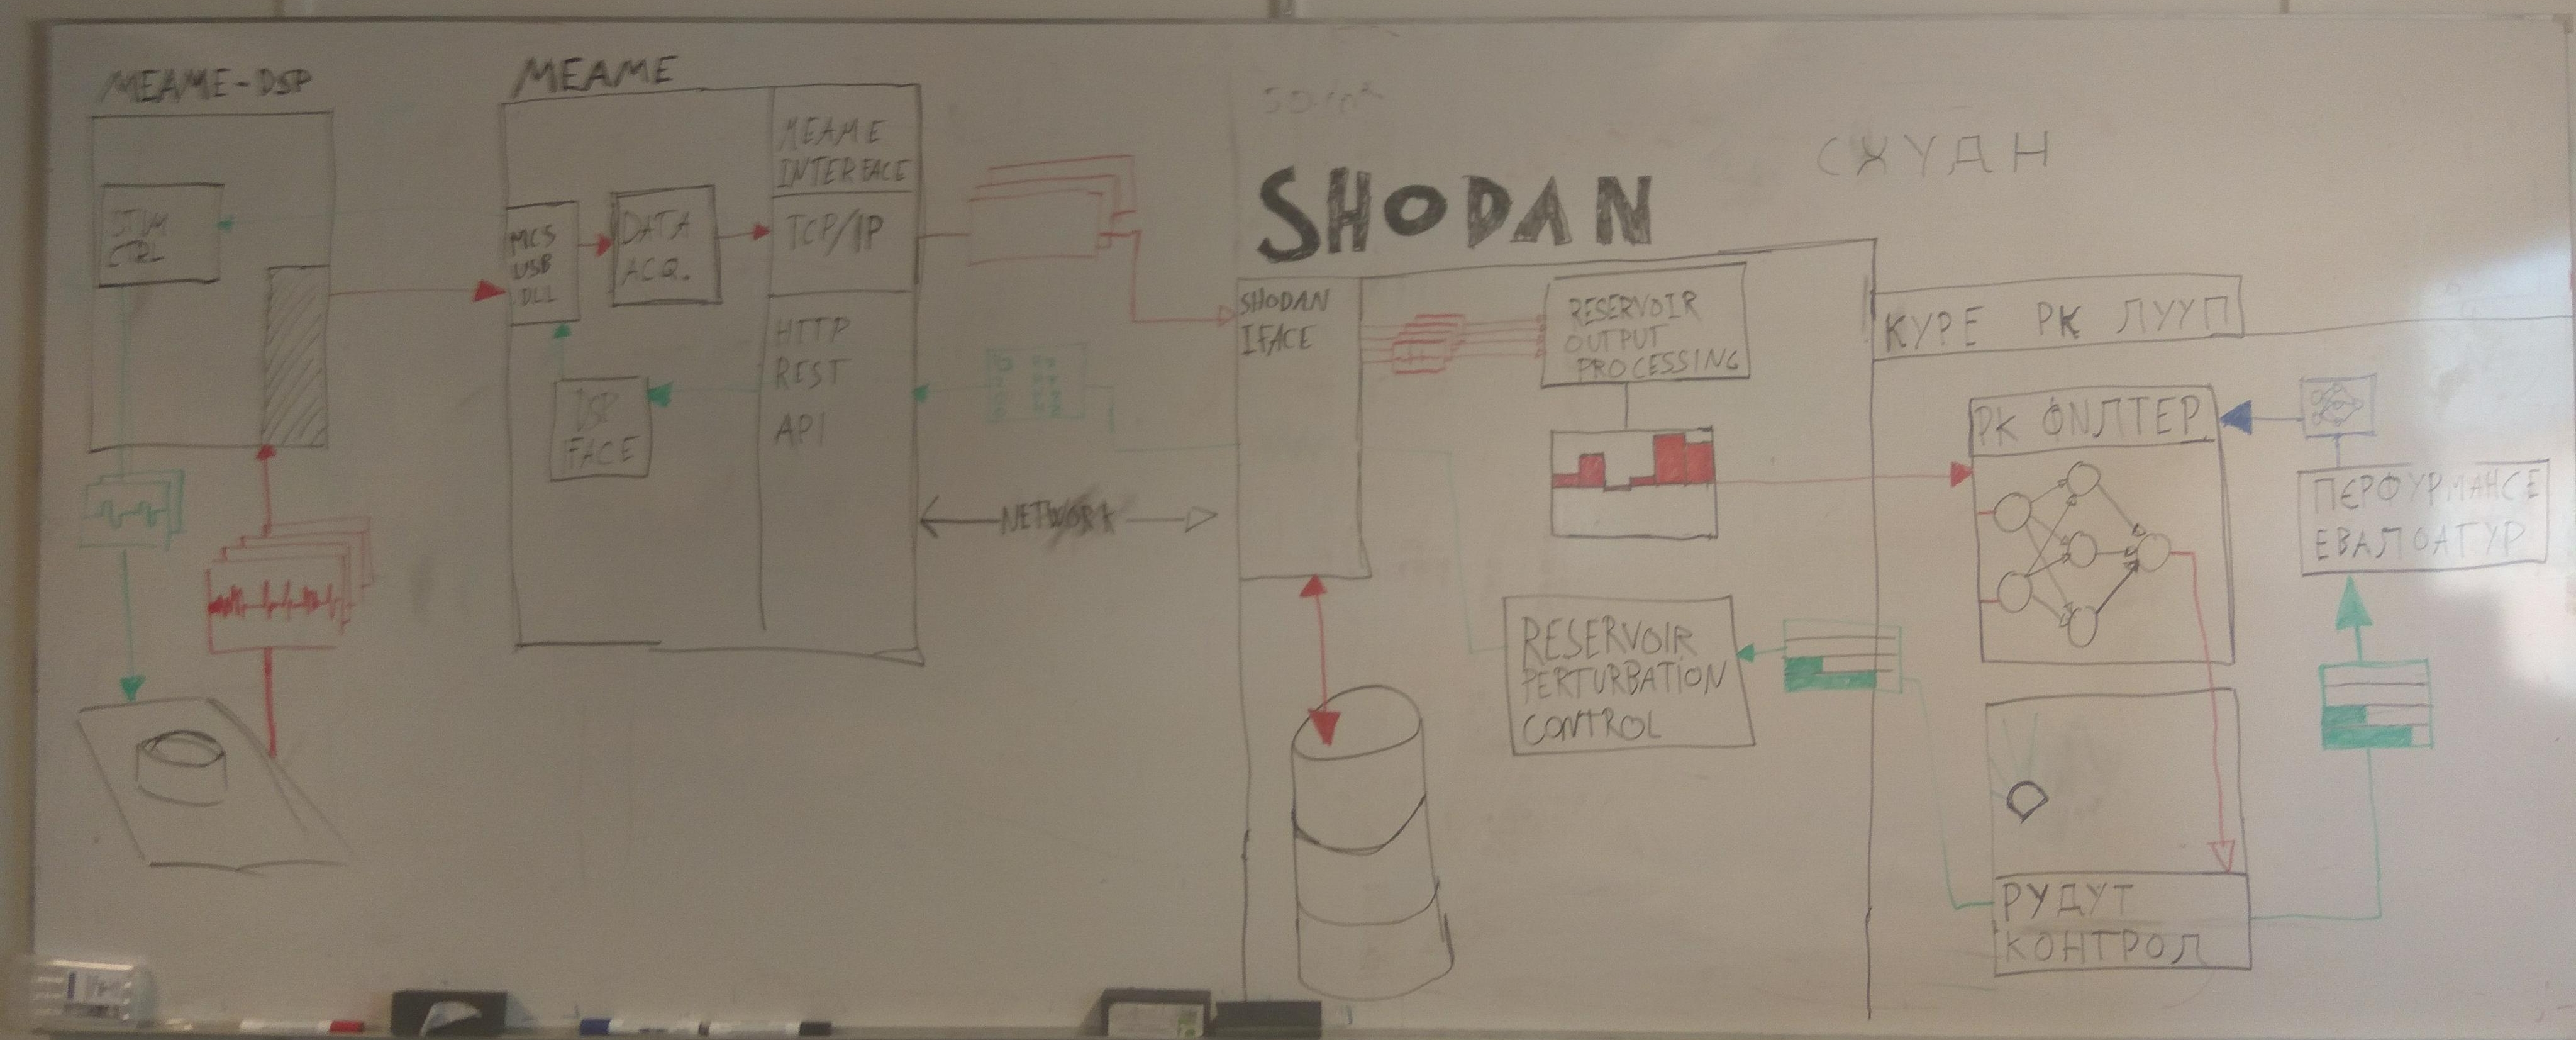 MEAME-DSP
STIM
CTRL
MEAME
MCS
USB
DLL
DATA
ACQ.
MEAME
INTERFACE
TCP/IP
HTTP
REST
API
DSP
IFACE
NETWORK
SHODAN
СХУДАН
SHODAN
IFACE
RESERVOIR
OUTPUT
PROCESSING
RESERVOIR
PERTURBATION
CONTROL
КУРЕ РК ЛУУП
РК ФИЛТЕР
ПЕРФУРМАНСЕ
ЕВАЛОАТУР
РУДУТ
КОНТРОЛ